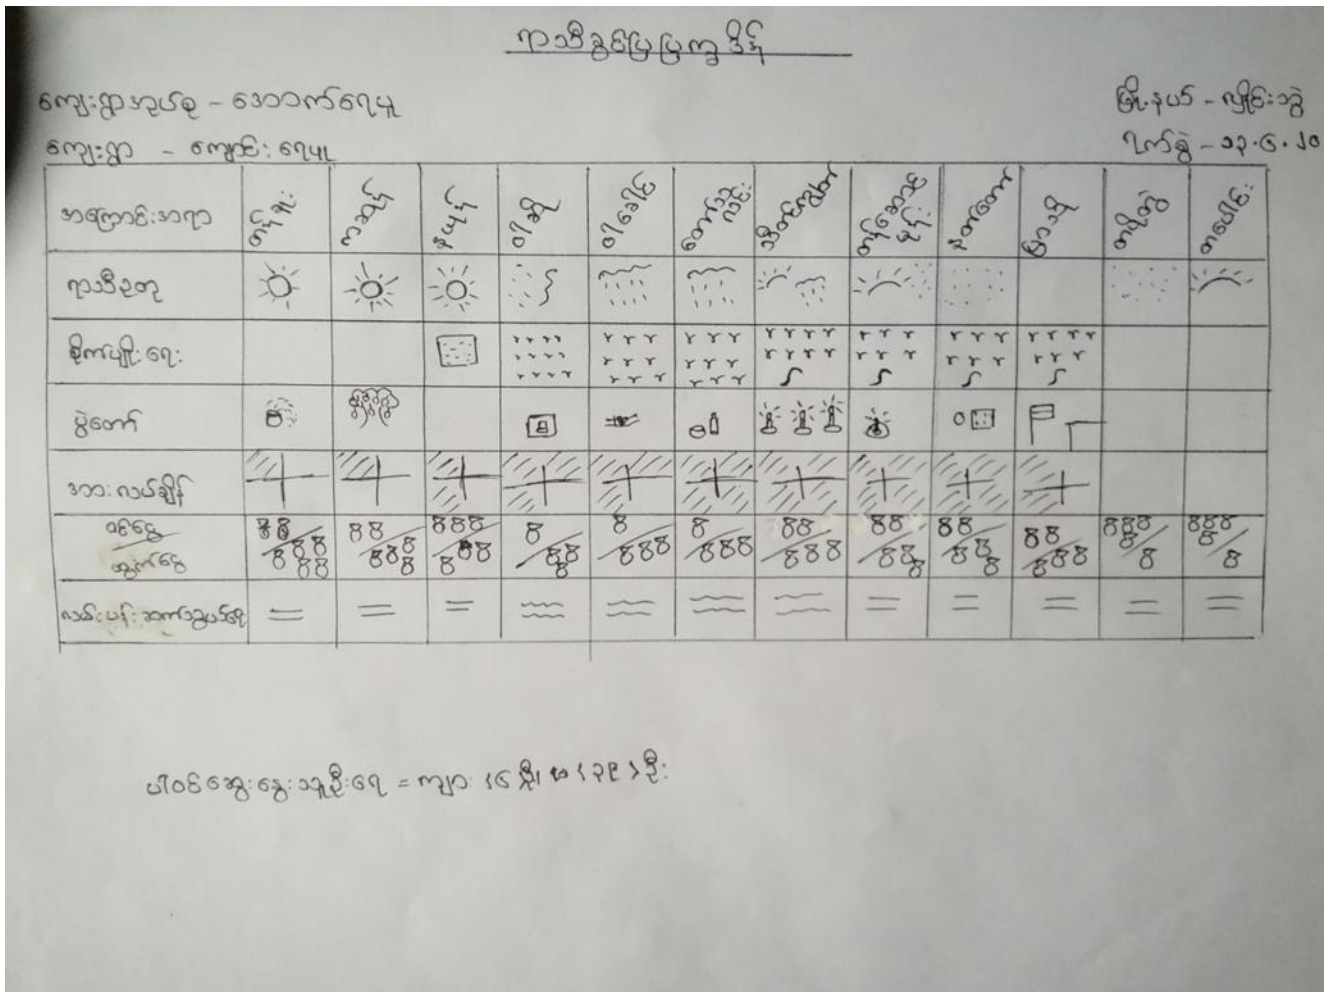 ရာသီခွင်ပြပြက္ခဒိန်
ကျေးရွာအုပ်စု - အောက်ရေပူ
မြို့နယ် - လှိုင်းဘွဲ
ကျေးရွာ - ကျောင်းရေပူ
ရက်စွဲ - ၁၃.၆.၂၀
အကြောင်းအရာ တန်ခူး ကဆုန် နယုန် ဝါဆို ဝါခေါင် တော်သလင်း သီတင်းကျွတ် တန်ဆောင်မုန်း နတ်တော် ပြာသို တပို့တွဲ တပေါင်း
ရာသီဥတု
စိုက်ပျိုးရေး
ပွဲတော်
အားလပ်ချိန်
ဝင်ငွေ
ထွက်ငွေ
လမ်းပန်းဆက်သွယ်ရေး
ပါဝင်ဆွေးနွေးသူဦးရေ = ကျား